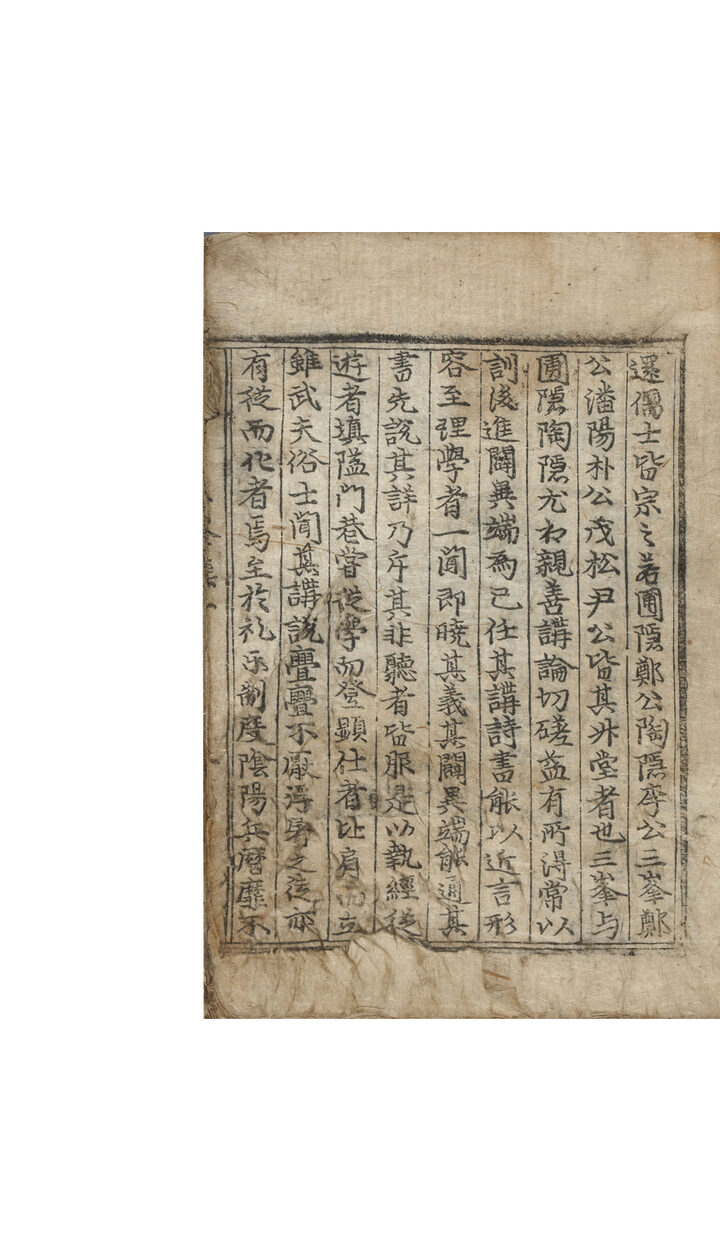 還儒士皆宗之若圃隱鄭公陶隱李公三峯鄭
公潘陽朴公茂松尹公皆其升堂者也三峯与
圃隱陶隱尤相親善講論切磋益有所得常以
訓後進闢異端為己任其講詩書能以近言形
容至理學者一聞即曉其義其闢異端能通其
書先說其詳乃斥其非聽者皆服是以執經從
遊者填隘門巷嘗從學而登顯仕者比肩而立
雖武夫俗士聞其講說亹亹不厭浮屠之徒亦
有從而化者焉至於礼乐制度隂陽兵曆靡不